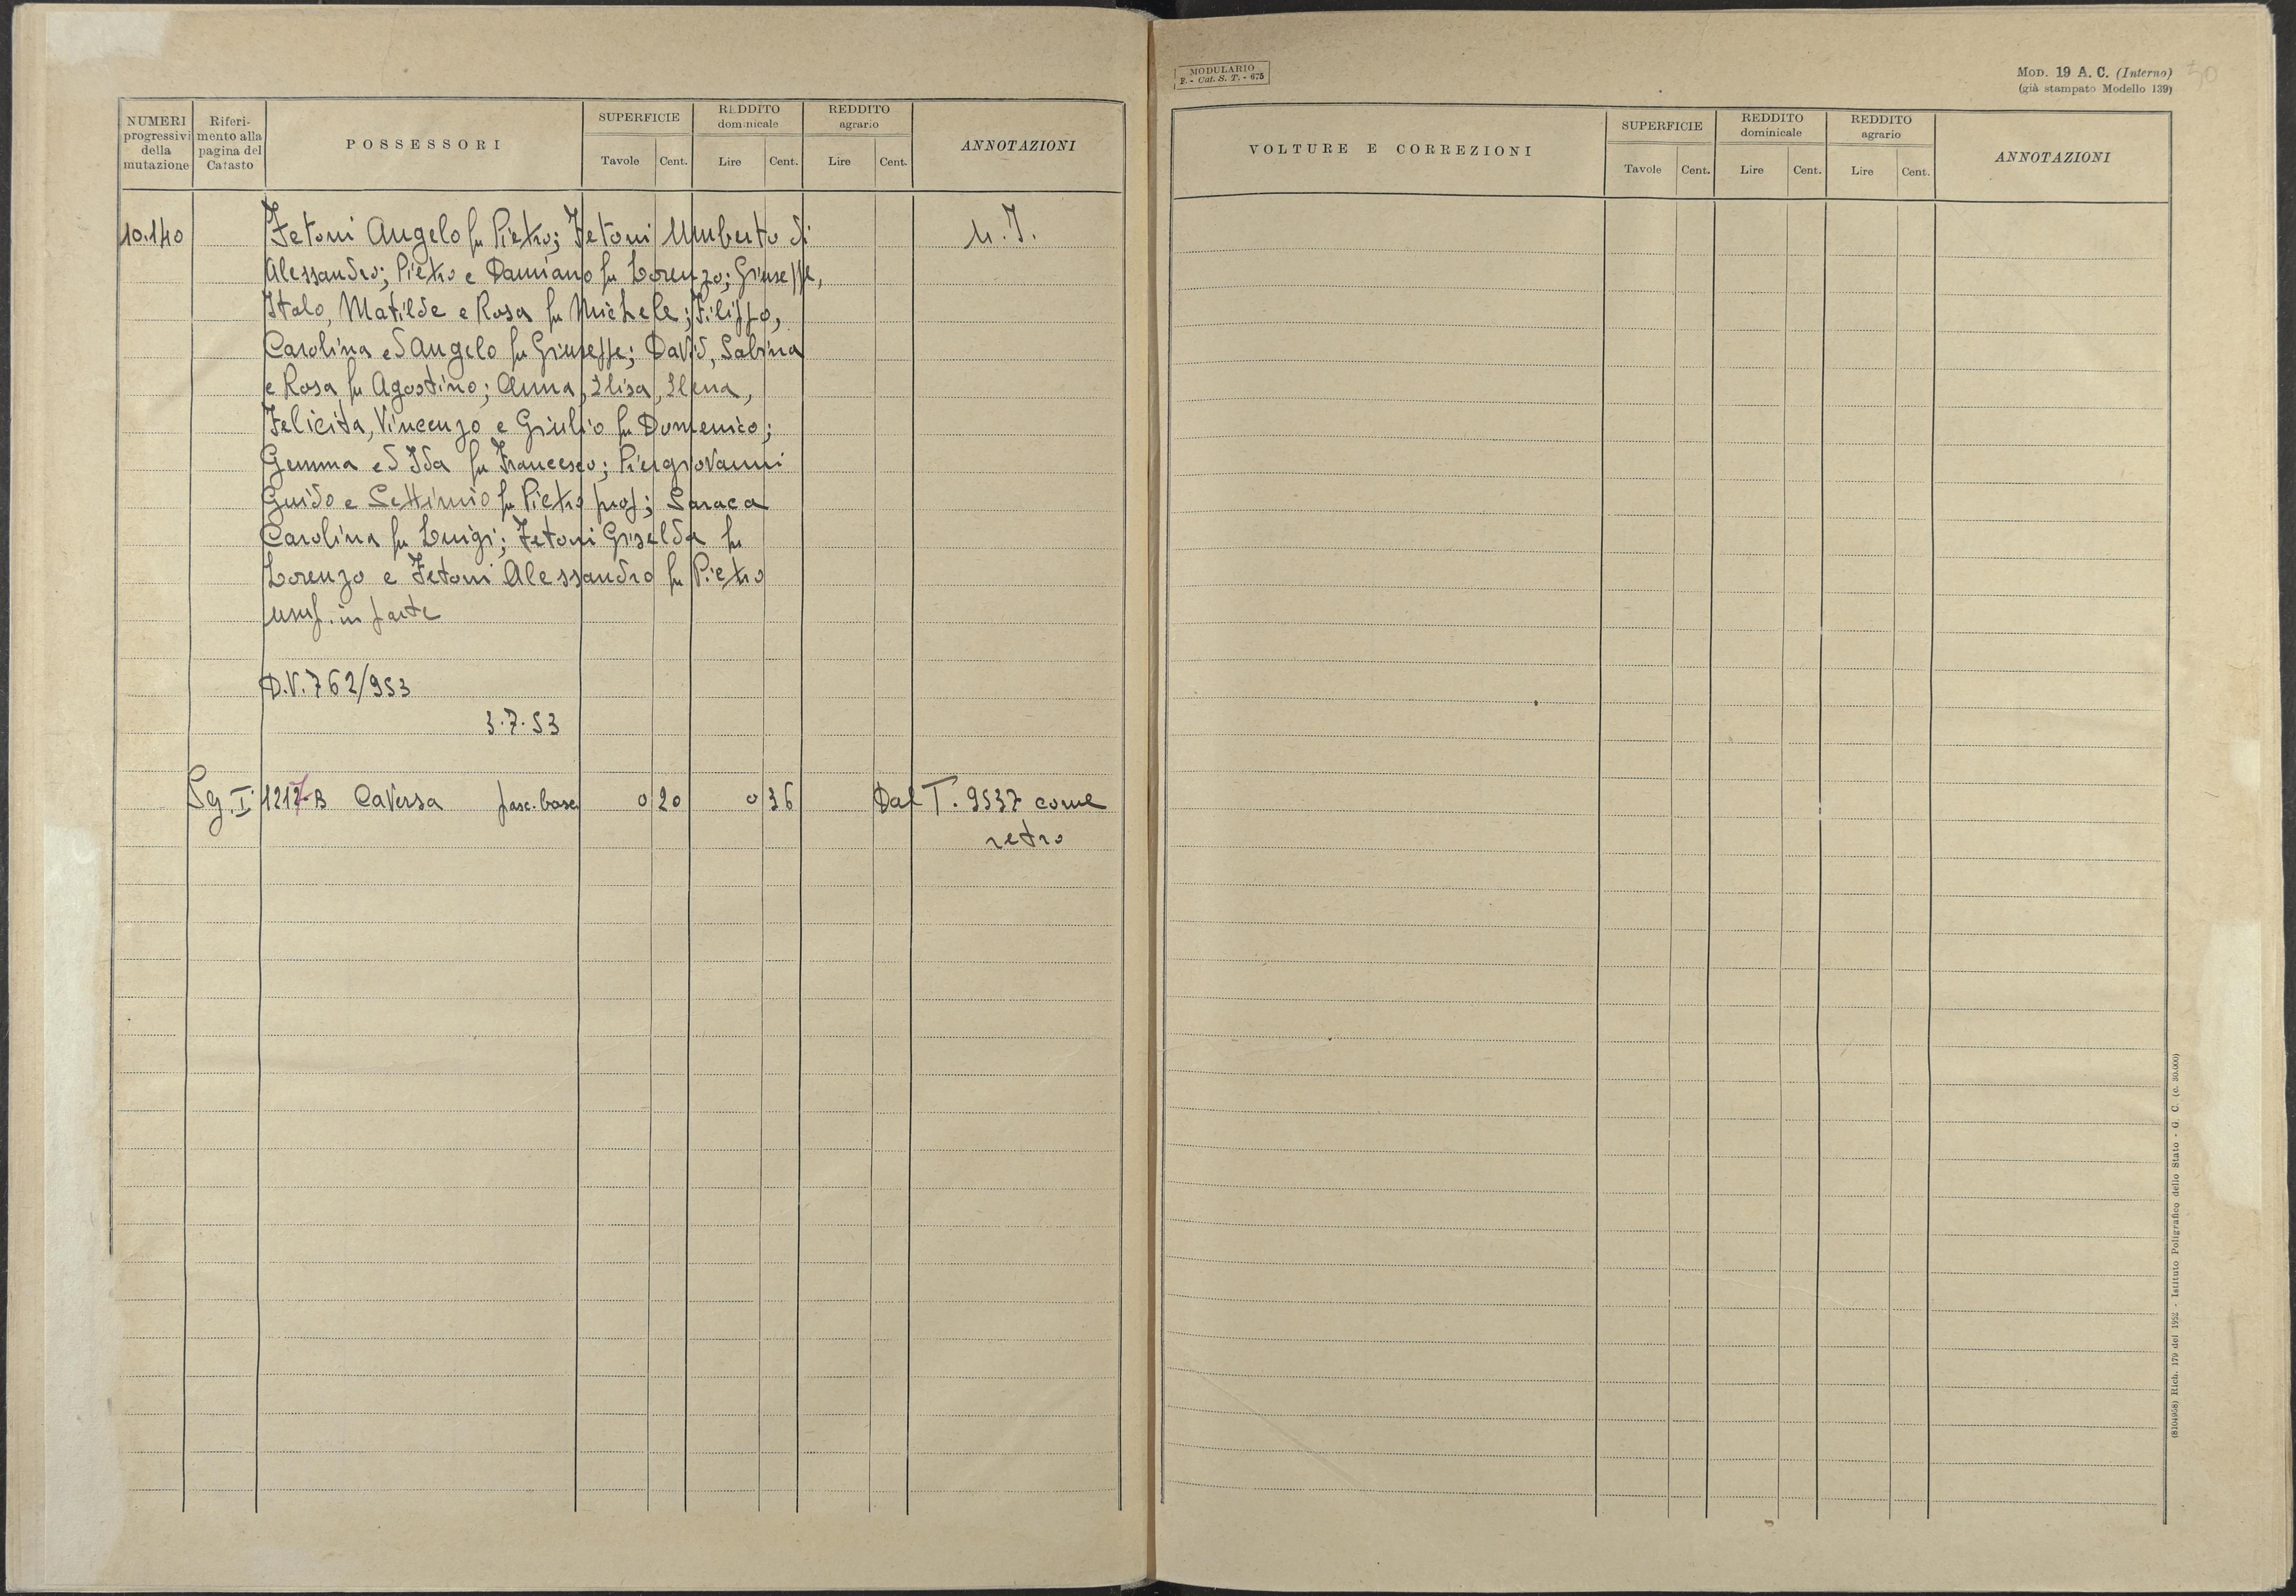 NUMERI progressivi della mutazione
Riferimento alla pagina del Catasto
POSSESSORI
SUPERFICIE
Tavole Cent.
REDDITO dominicale
Lire Cent.
REDDITO agrario
Lire Cent.
ANNOTAZIONI
10.140 Fetoni Angelo fu Pietro; Fetoni Umberto di
Alessandro; Pietro e Damiano fu Lorenzo; Giuseppe,
Italo, Matilde e Rosa fu Michele; Filippo,
Carolina ed Angelo fu Giuseppe; David, Sabina
e Rosa fu Agostino; Anna, Elisa, Elena,
Felicita, Vincenzo e Giulio fu Domenico;
Gemma ed Ida fu Francesco; Piergiovanni
Guido e Settimio fu Pietro prop; Saraca
Carolina fu Luigi; Fetoni Griselda fu
Lorenzo e Fetoni Alessandro fu Pietro
usuf. in parte
D.V. 762/953
3.7.53
Sg. I 1217-B Caversa pasc. bosc. 0 20 0 36 Dal T. 9537 come
retro
MODULARIO
F. - Cat. S. T. - 675
MOD. 19 A. C. (Interno)
(già stampato Modello 139)
50
VOLTURE E CORREZIONI
SUPERFICIE
Tavole Cent.
REDDITO dominicale
Lire Cent.
REDDITO agrario
Lire Cent.
ANNOTAZIONI
(8104958) Rich. 179 del 1952 - Istituto Poligrafico dello Stato - G. C. (c. 30.000)